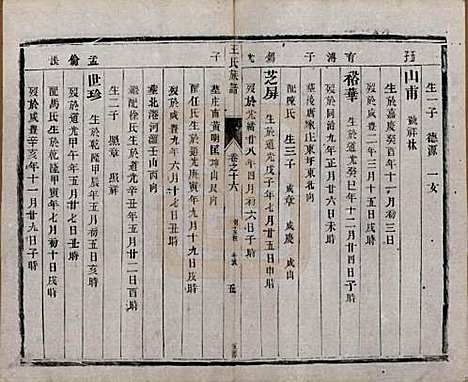 生一子 德源 一女
山甫 號祥林
生於嘉慶癸酉年十一月初三日
歿於咸豐二年三月十五日戌時
裕華 生於道光癸巳年十二月廿四日子時
歿於同治九年正月廿六日未時
葬後唐家圩東圩東北向
子
配陳氏 生三子 成章 成慶 成尚
芝屏 生於道光戊子年七月廿五日寅時
歿於光緒廿八年四月初六日子時
王氏族譜
卷之十六
墓庄南黃明匡坤山艮向
配任氏生於道光庚寅年九月十九日辰時
歿於咸豐九年六月十七日戌時
配徐氏生於道光辛丑年五月廿二日酉時
墓北港河灝子山丙向
生二子 照章 照祥
世珍 生於乾隆甲辰年五月初五日亥時
歿於道光甲午年五月廿七日戌時
配馬氏生於乾隆甲寅年七月初十日戌時
歿於咸豐辛亥年十一月廿九日子時